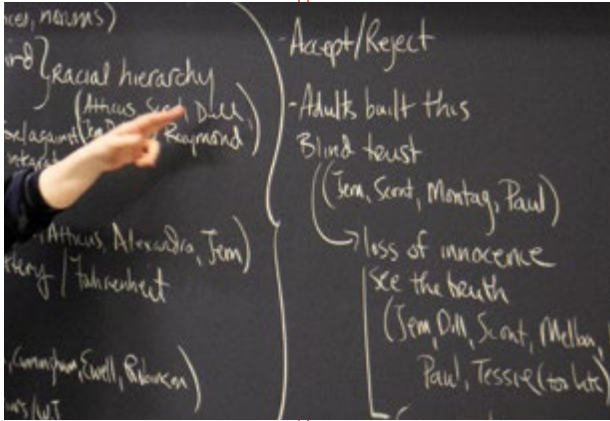 norms)
Racial hierarchy
(Atticus, Scout, Dill,
Raymond)
Atticus, Alexandra, Jem)
/ Fahrenheit
Cunningham, Ewell, Robinson)
- Accept/Reject
- Adults built this
Blind trust
(Jem, Scout, Montag, Paul)
loss of innocence
see the truth
(Jem, Dill, Scout,
Paul, Tessie (too late)